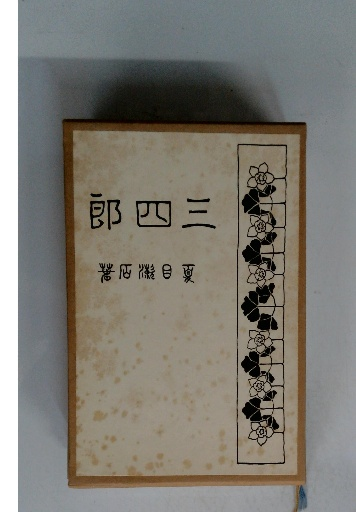 三四郎
夏目漱石著